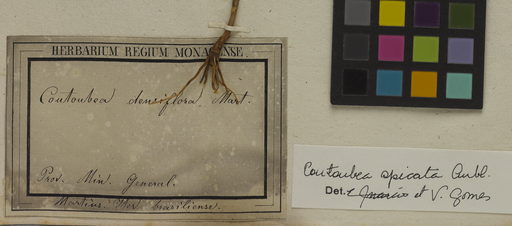 HERBARIUM REGIUM MONACENSE.
Coutoubea densiflora, Mart.
Prov. Min. General.
Martius. Iter brasiliense.
Coutoubea spicata Aubl.
Det. et V. Gomes